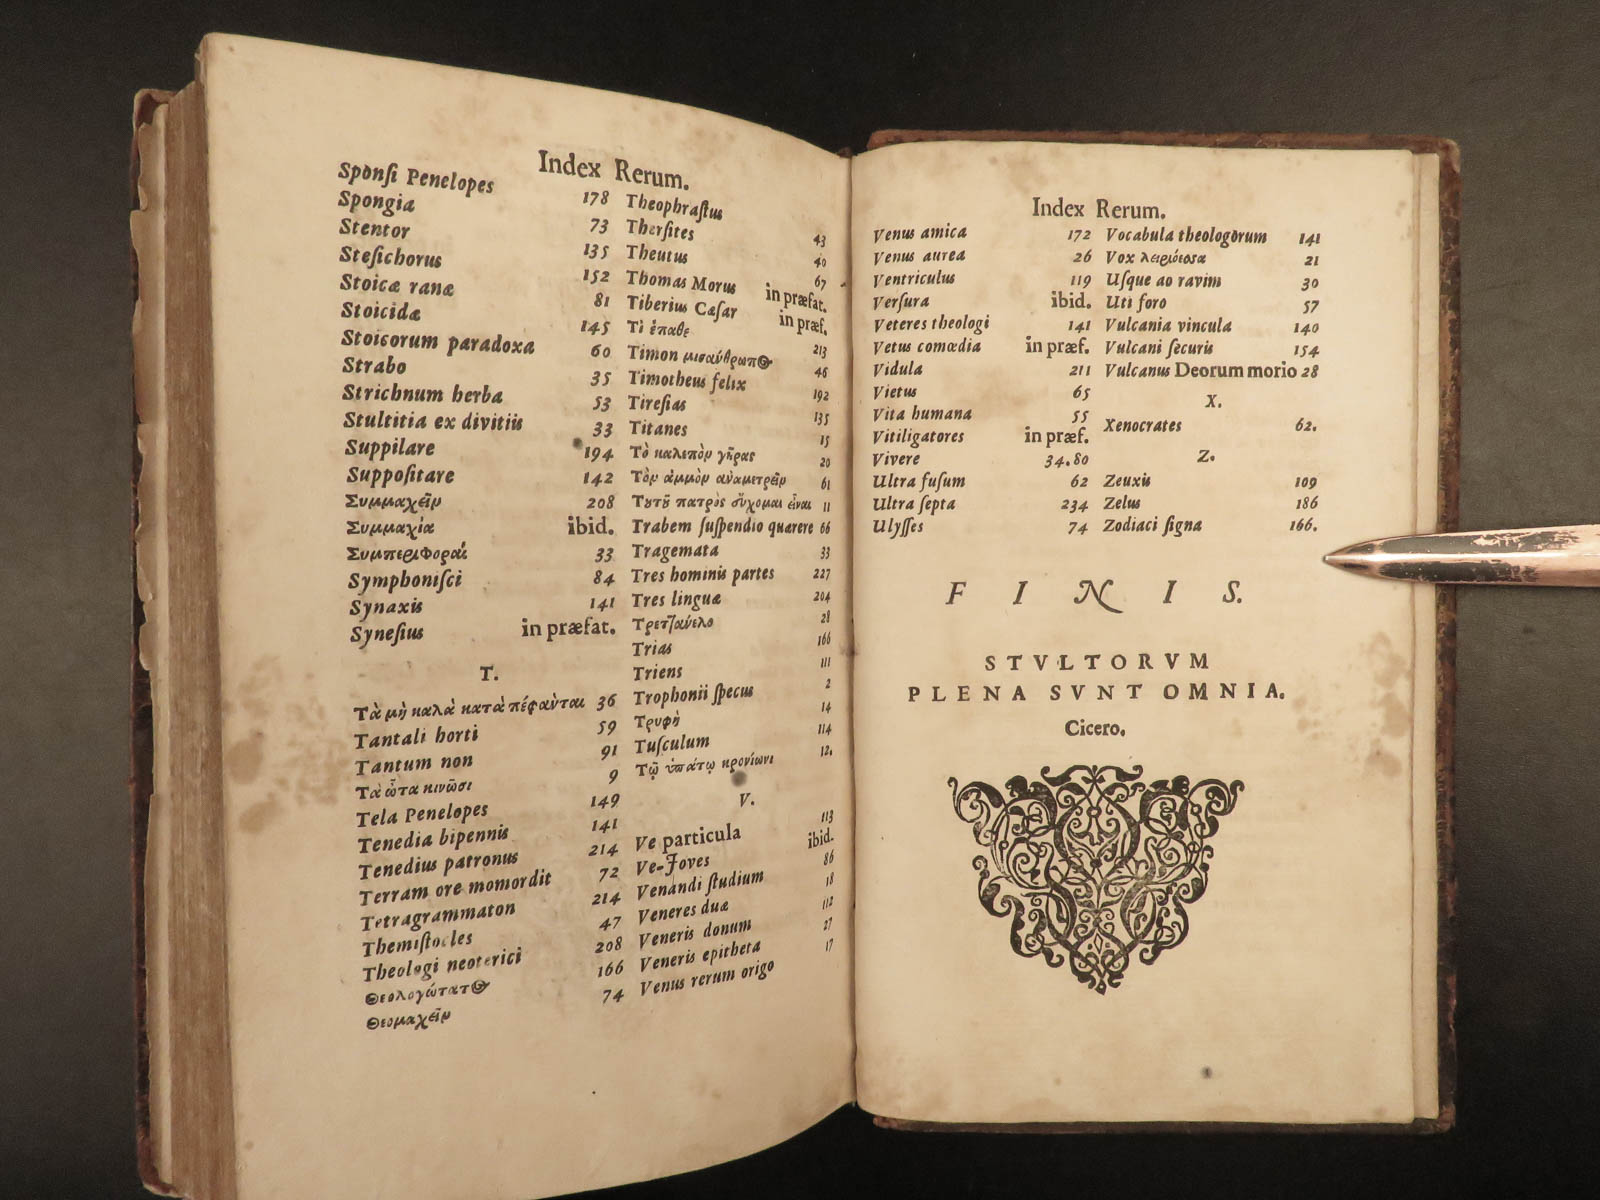 Index Rerum.
Sponſi Penelopes 178
Spongia 73
Stentor 135
Steſichorus 152
Stoicæ ranæ 81
Stoicidæ 145
Stoicorum paradoxa 60
Strabo 35
Strichnum herba 53
Stultitia ex divitiis 33
Suppilare 194
Suppoſitare 142
Συμμαχεῖν 208
Συμμαχία ibid.
Συμπεριφοραὶ 33
Symphoniſci 84
Synaxis 141
Syneſius in præfat.
T.
Τὰ μὴ καλὰ κατὰ πέφανται 36
Tantali horti 59
Tantum non 91
Τὰ ὦτα κινῶσι 9
Tela Penelopes 149
Tenedia bipennis 141
Tenedius patronus 214
Terram ore momordit 72
Tetragrammaton 214
Themiſtocles 47
Theologi neoterici 208
Θεολογώτατος 166
Θεομαχεῖν 74
Theophraſtus 43
Therſites 40
Theutus 67
Thomas Morus in præfat.
Tiberius Cæſar in præf.
Τὶ ἔπαθε 213
Timon μισάνθρωπος 46
Timotheus felix 192
Tireſias 135
Titanes 15
Τὸ χαλεπὸν γῆρας 20
Τὸν ἄμμον ἀναμετρεῖν 61
Τȣτȣ͂ πατρὸς εὔχομαι εἶναι 11
Trabem ſuſpendio quærere 66
Tragemata 33
Tres hominis partes 227
Tres linguæ 204
Τρετζανελο 28
Trias 166
Triens 111
Trophonii ſpecus 2
Τρυφὴ 14
Tuſculum 114
Τῷ ὑπάτῳ κρονίωνι 12.
V.
Ve particula 113
Ve-Joves ibid.
Venandi ſtudium 86
Veneres duæ 18
Veneris donum 112
Veneris epitheta 27
Venus rerum origo 17
Index Rerum.
Venus amica 172
Venus aurea 26
Ventriculus 119
Verſura ibid.
Veteres theologi 141
Vetus comœdia in præf.
Vidula 211
Vietus 65
Vita humana 55
Vitiligatores in præf.
Vivere 34.80
Ultra fuſum 62
Ultra ſepta 234
Ulyſſes 74
Vocabula theologorum 141
Vox λειριόεσσα 21
Uſque ao ravim 30
Uti foro 57
Vulcania vincula 140
Vulcani ſecuris 154
Vulcanus Deorum morio 28
X.
Xenocrates 62.
Z.
Zeuxis 109
Zelus 186
Zodiaci ſigna 166.
FINIS.
STVLTORVM
PLENA SVNT OMNIA.
Cicero.